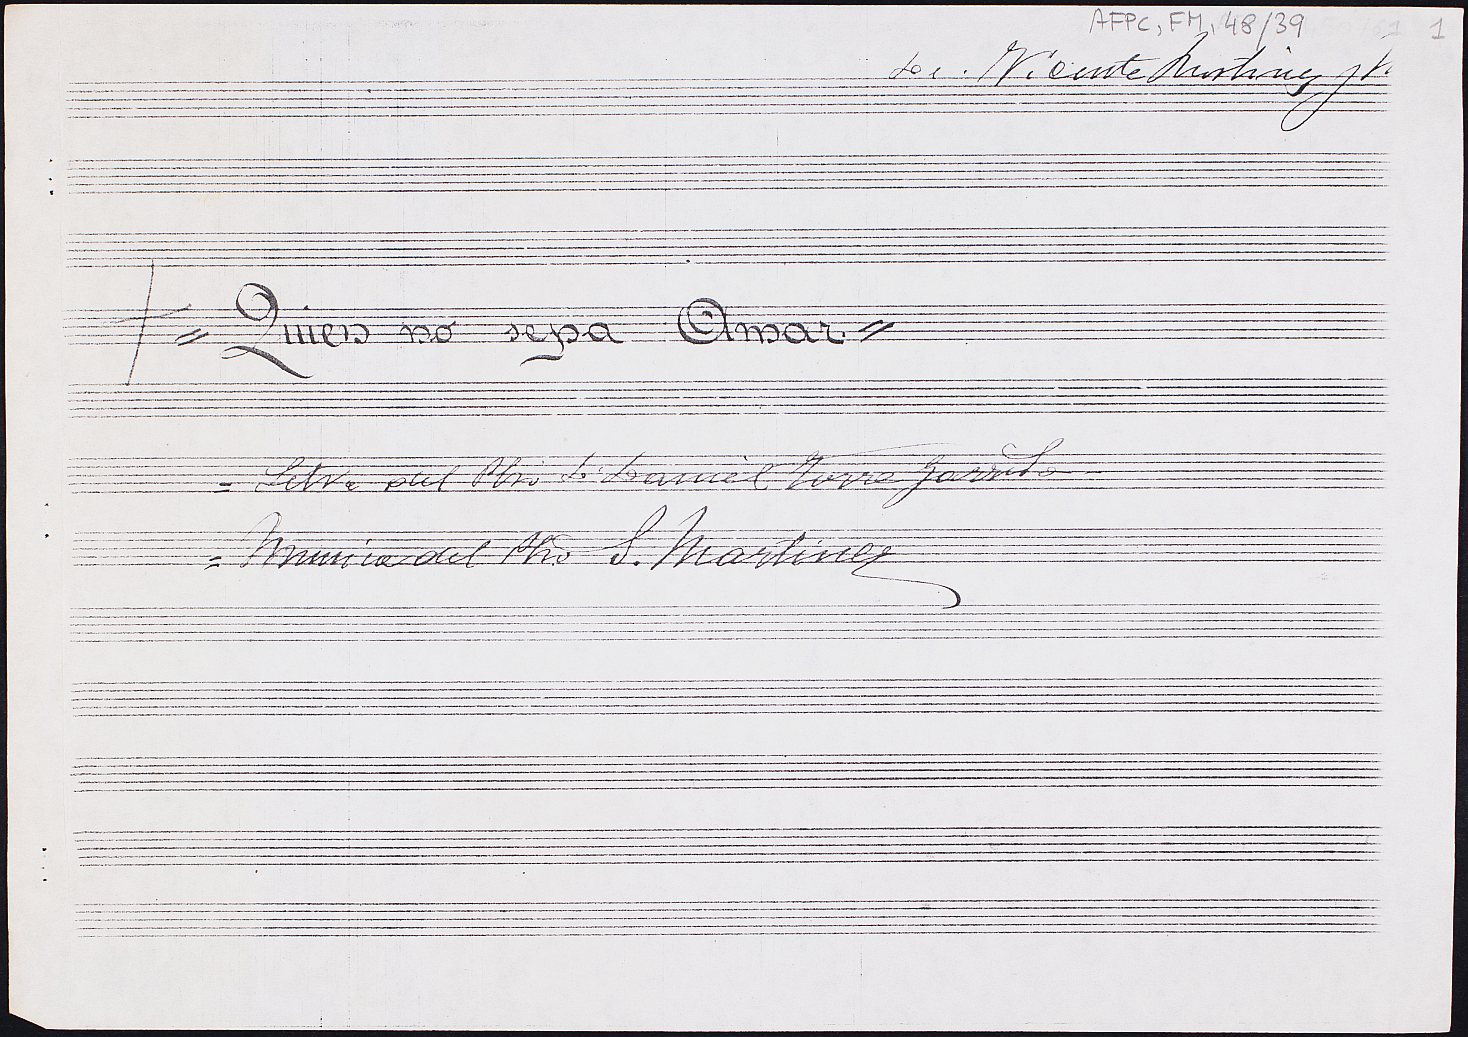 AFPC, FM, 48/39 1 1
de. Vicente Martinez
= Quien no sepa Amar. =
= Letra del Pbro D. Daniel Torre Garrido -
= Musica del Pbro S. Martinez